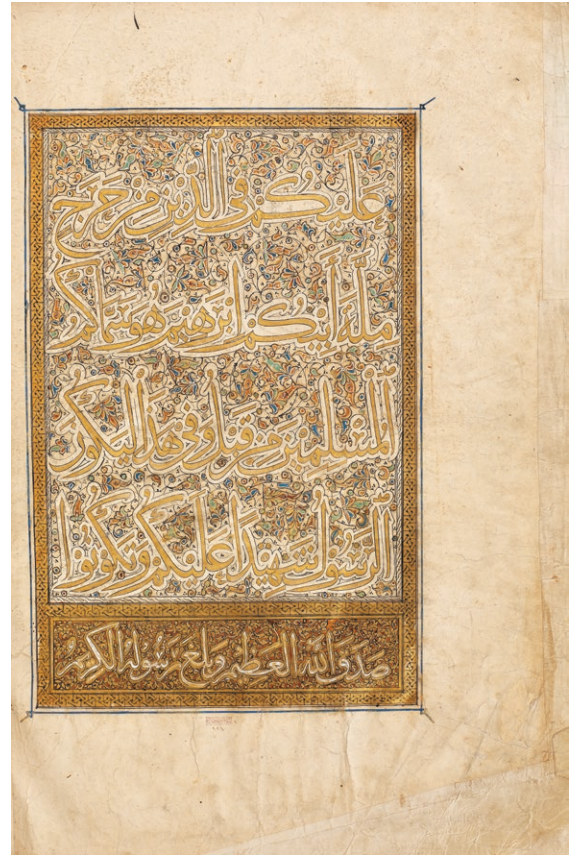 عَلَيْكُمْ فِى ٱلدِّينِ مِنْ حَرَجٍ
مِلَّةَ أَبِيكُمْ إِبْرَهِيمَ هُوَ سَمَّاكُمُ
ٱلْمُسْلِمِينَ مِنْ قَبْلُ وَفِى هَذَا لِيَكُونَ
ٱلرَّسُولُ شَهِيدًا عَلَيْكُمْ وَتَكُونُوا
صدق الله العظيم وبلغ رسوله الكريم